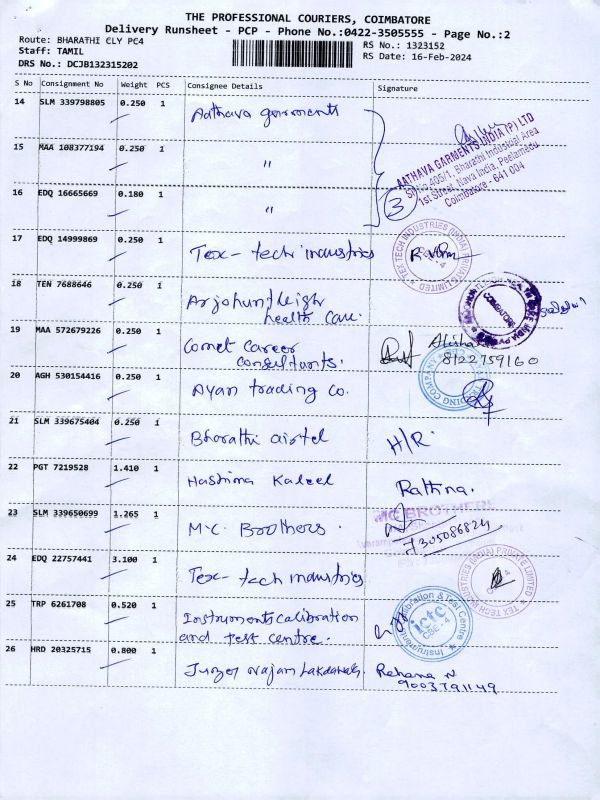 THE PROFESSIONAL COURIERS, COIMBATORE
Delivery Runsheet - PCP - Phone No.:0422-3505555 - Page No.:2
Route: BHARATHI CLY PC4
Staff: TAMIL
DRS No.: DCJB132315202
RS No.: 1323152
RS Date: 16-Feb-2024
S No Consignment No Weight PCS Consignee Details Signature
14 SLM 339798805 0.250 1 Aathava garments
15 MAA 108377194 0.250 1 "
16 EDQ 16665669 0.180 1 "
3
AATHAVA GARMENTS INDIA (P) LTD
405/1, Bharathi Industrial Area
1st Street, Nava India, Peelamedu
Coimbatore - 641 004
17 EDQ 14999869 0.250 1 Tex-tech industries
TEX TECH INDUSTRIES (INDIA) PRIVATE LIMITED
18 TEN 7688646 0.250 1 Arjohuntleigh
health care.
COIMBATORE
19 MAA 572679226 0.250 1 Comet Career
consultants.
8122759160
20 AGH 530154416 0.250 1 Ayan trading co.
TRADING COMPANY
21 SLM 339675404 0.250 1 Bharathi airtel H/R.
22 PGT 7219528 1.410 1 Hashima Kaleel Rathna.
23 SLM 339650699 1.265 1 M.C. Brothers.
MC BROTHERS
7305086824
24 EDQ 22757441 3.100 1 Tex-tech industries
TEX TECH INDUSTRIES (INDIA) PRIVATE LIMITED
25 TRP 6261708 0.520 1 Instruments calibration
and test centre.
Instruments Calibration & Test Centre
ictc
CBE - 4
26 HRD 20325715 0.800 1 Lakdawala. Rehana N
9003791149